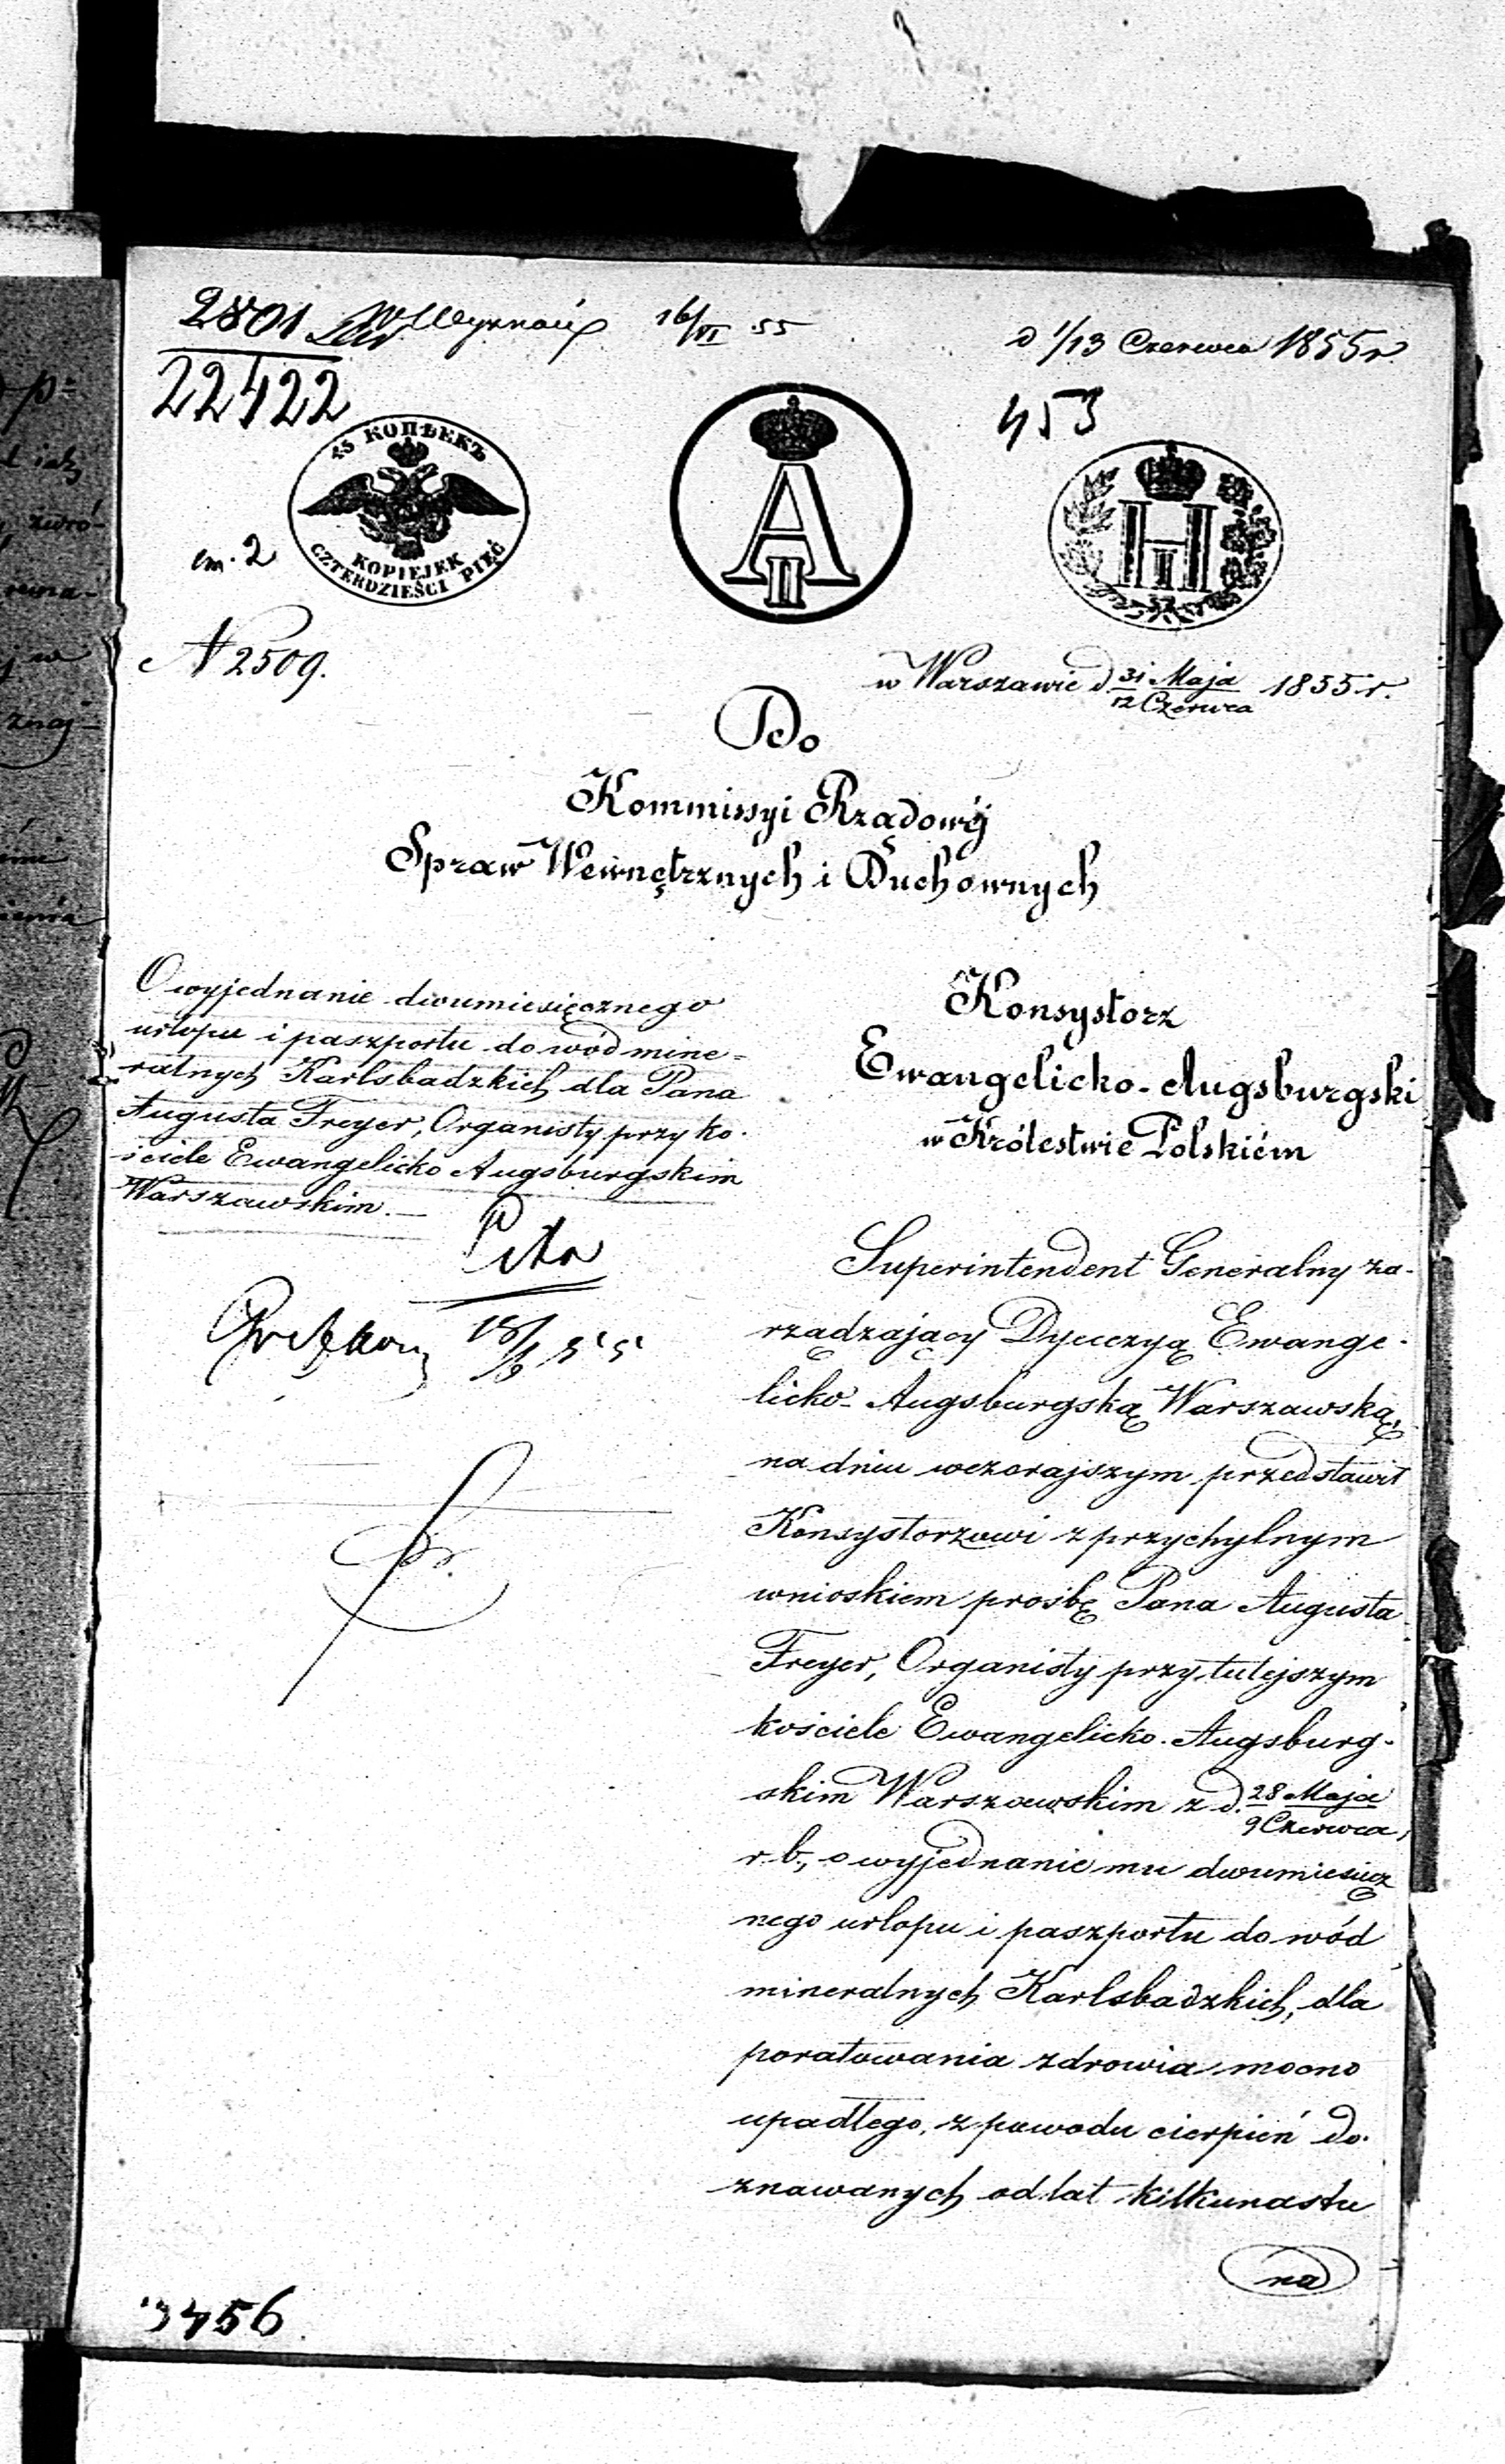 2801
22422
16/VI 55
d 1/13 Czerwca 1855 r
453
45 КОПѢЕКЪ
KOPIEJEK
CZTERDZIEŚCI PIĘĆ
A II
H I
m. 2
N 2509.
w Warszawie d 31 Maja / 12 Czerwca 1855 r.
Do
Kommissyi Rządowéj
Spraw Wewnętrznych i Duchownych
O wyjednanie dwumiesięcznego
urlopu i paszportu do wód mine=
ralnych Karlsbadzkich dla Pana
Augusta Freyer, Organisty przy ko-
ściele Ewangelicko Augsburgskim
Warszawskim. —
Konsystorz
Ewangelicko-Augsburgski
w Królestwie Polskiém
Superintendent Generalny za-
rządzający Dyecezyą Ewange-
licko-Augsburgską Warszawską,
na dniu wczorajszym przedstawił
Konsystorzowi z przychylnym
wnioskiem prośbę Pana Augusta
Freyer, Organisty przy tutejszym
kościele Ewangelicko-Augsburg-
skim Warszawskim z d. 28 Maja / 9 Czerwca,
r. b., o wyjednanie mu dwumiesięcz
nego urlopu i paszportu do wód
mineralnych Karlsbadzkich, dla
poratowania zdrowia mocno
upadłego, z powodu cierpień do-
znawanych od lat kilkunastu
na
3456